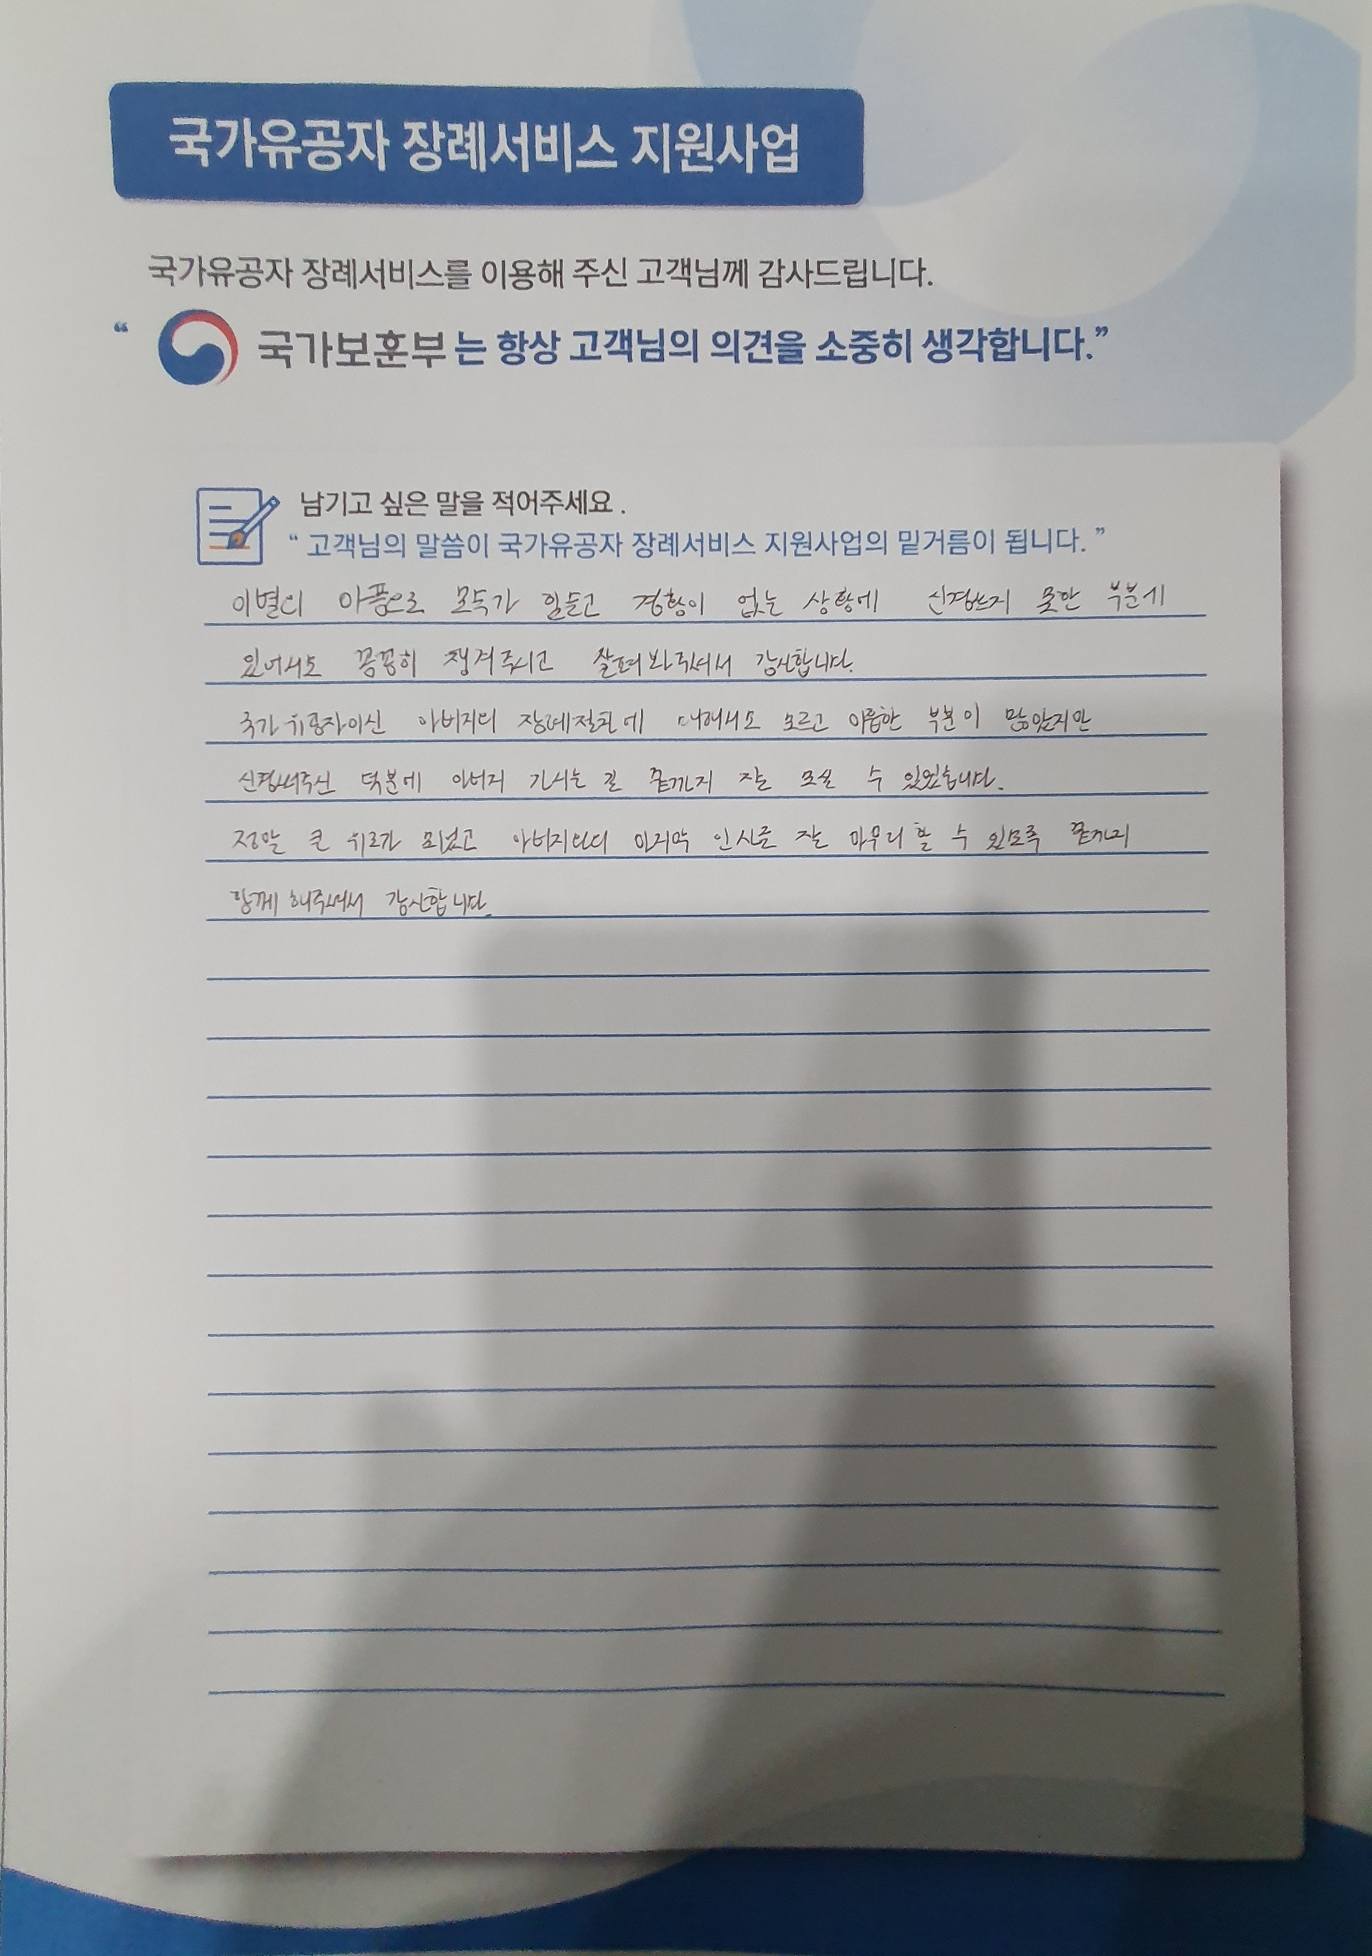 국가유공자 장례서비스 지원사업
국가유공자 장례서비스를 이용해 주신 고객님께 감사드립니다.
“ 국가보훈부는 항상 고객님의 의견을 소중히 생각합니다.”
남기고 싶은 말을 적어주세요 .
“ 고객님의 말씀이 국가유공자 장례서비스 지원사업의 밑거름이 됩니다. ”
이별의 아픔으로 모두가 힘들고 경황이 없는 상황에 신경쓰지 못한 부분에
있어서도 꼼꼼히 챙겨주시고 살펴봐주셔서 감사합니다.
국가유공자이신 아버지의 장례절차에 대해서도 모르고 미흡한 부분이 많았지만
신경써주신 덕분에 아버지 가시는 길 끝까지 잘 모실 수 있었습니다.
정말 큰 위로가 되었고 아버지와의 마지막 인사를 잘 마무리 할 수 있도록 끝까지
함께 해주셔서 감사합니다.